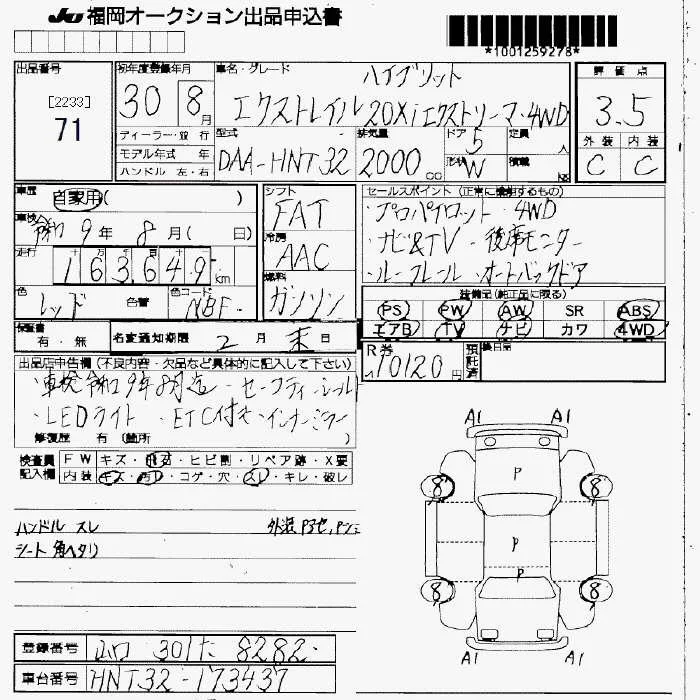 JU 福岡オークション出品申込書
*1001259278*
出品番号 [2233] 71
初年度登録年月 30 8月
車名・グレード ハイブリット
エクストレイル 20Xiエクストリーマ・4WD
評価点 3.5
外装 内装
C C
ディーラー・並行
モデル年式 年
ハンドル 左・右
型式 DAA-HNT32
排気量 2000 CC
ドア 5
形状 W
定員 人
積載 KG
車歴 自家用( )
車検 令和9年8月( 日)
走行 163,649 km
色 レッド 色替
色コード NBF
シフト FAT
冷房 AAC
燃料 ガソリン
セールスポイント (正常に機能するもの)
・プロパイロット・4WD
・ナビ&TV・後席モニター
・ルーフレール・オートバックドア
装備品(純正品に限る)
PS PW AW SR ABS
エアB TV ナビ カワ 4WD
保証書 有・無
名変通知期限 2月末日
R券 10120円
預託済
後日品
出品店申告欄(不良内容・欠品など具体的に記入して下さい)
・車検令和9年8月迄・セーフティーシールド
・LEDライト・ETC付き・インナーミラー
修復歴 有(箇所 )
検査員記入欄
FW キズ・飛石・ヒビ割・リペア跡・X要
内装 キズ・汚れ・コゲ・穴・スレ・キレ・破レ
ハンドル スレ
外装
シート 角ヘタリ
A1 A1
P
8 8
P
P
8 8
A1 A1
登録番号 山口 301た 8282
車台番号 HNT32-173437